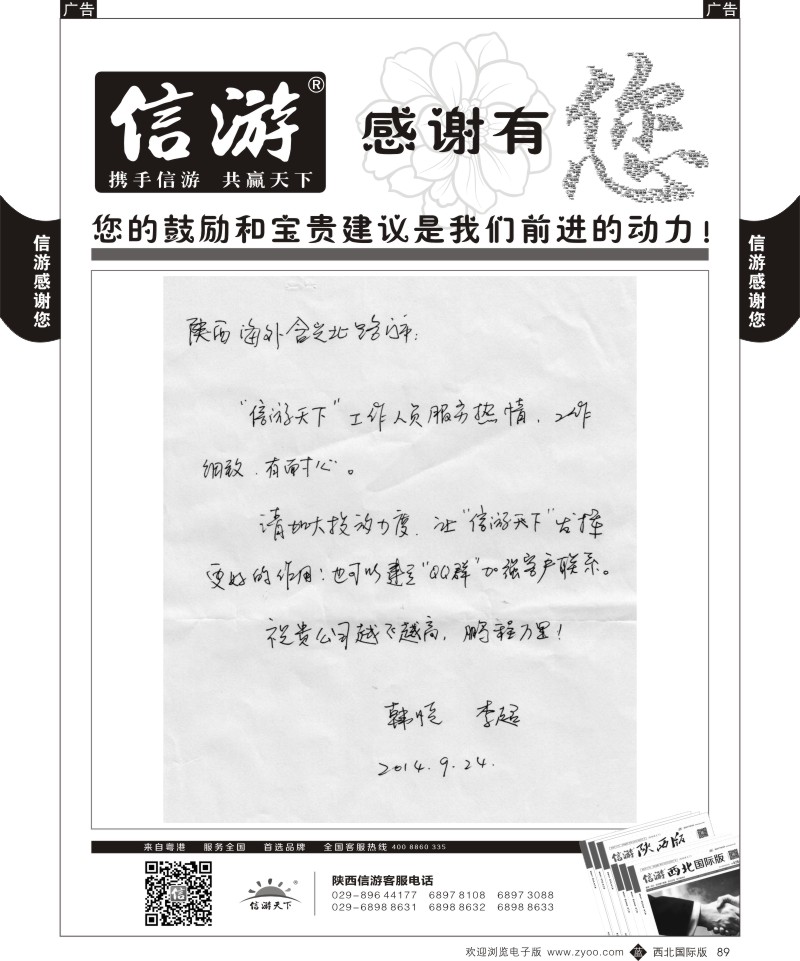 广告
广告
信游®
携手信游 共赢天下
感谢有您
您的鼓励和宝贵建议是我们前进的动力!
信游感谢您
信游感谢您
陕西海外含光北路门市:
"信游天下"工作人员服务热情、工作
细致、有耐心。
请加大投放力度,让"信游天下"发挥
更好的作用;也可以建立"QQ群"加强客户联系。
祝贵公司越飞越高,鹏程万里!
韩悦 李超
2014.9.24.
来自粤港 服务全国 首选品牌 全国客服热线 400 8860 335
信游
信游天下
陕西信游客服电话
029-896 44177 6897 8108 6897 3088
029-6898 8631 6898 8632 6898 8633
信游 陕西版
信游 西北国际版
欢迎浏览电子版 www.zyoo.com 蓝 西北国际版 89